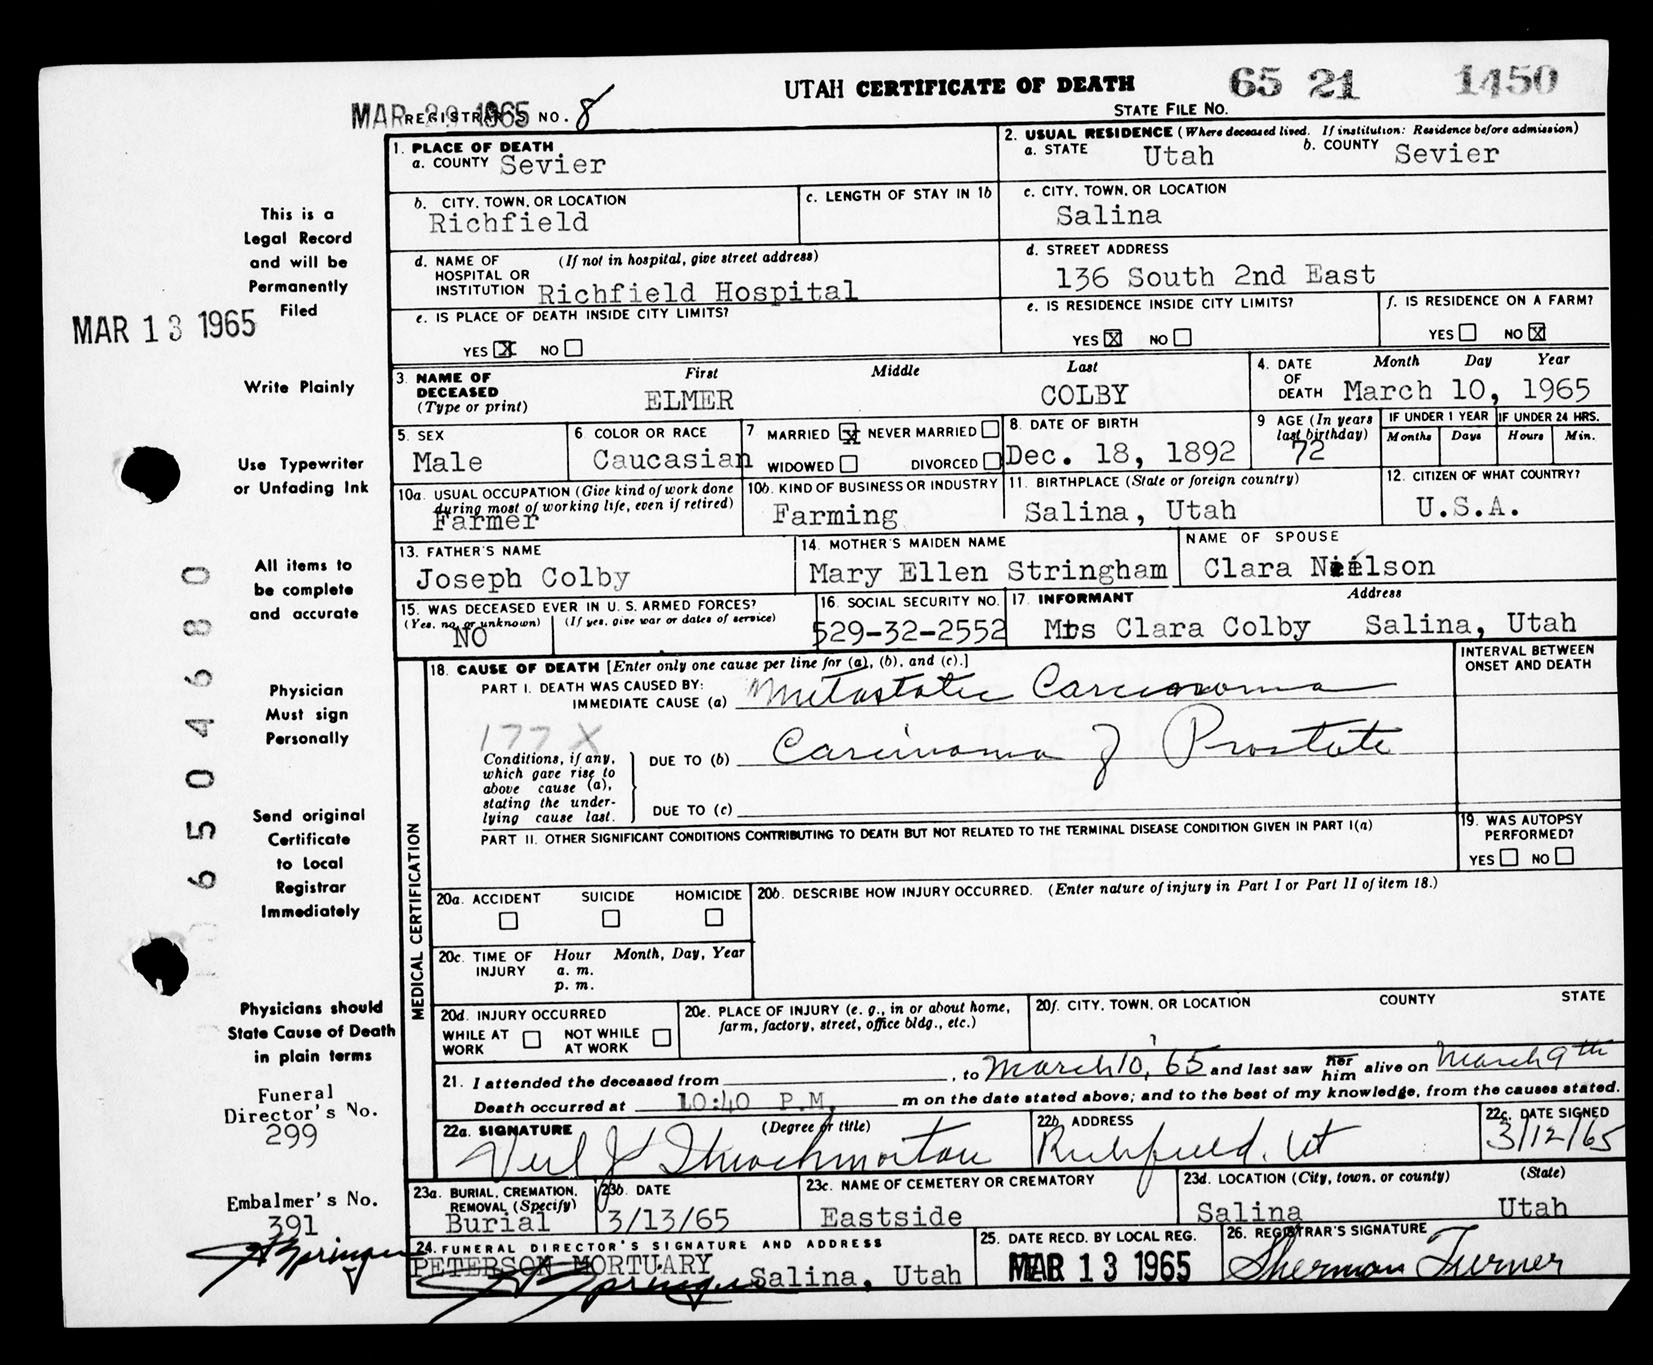 UTAH CERTIFICATE OF DEATH
65 21 1450
STATE FILE NO.
MAR 29 1965
REGISTRAR'S NO. 8
1. PLACE OF DEATH
a. COUNTY Sevier
2. USUAL RESIDENCE (Where deceased lived. If institution: Residence before admission)
a. STATE Utah b. COUNTY Sevier
b. CITY, TOWN, OR LOCATION
Richfield
c. LENGTH OF STAY IN 1b
c. CITY, TOWN, OR LOCATION
Salina
d. NAME OF HOSPITAL OR INSTITUTION (If not in hospital, give street address)
Richfield Hospital
d. STREET ADDRESS
136 South 2nd East
e. IS PLACE OF DEATH INSIDE CITY LIMITS?
YES X NO
e. IS RESIDENCE INSIDE CITY LIMITS?
YES X NO
f. IS RESIDENCE ON A FARM?
YES NO X
3. NAME OF DECEASED (Type or print)
First Middle Last
ELMER COLBY
4. DATE OF DEATH Month Day Year
March 10, 1965
5. SEX
Male
6 COLOR OR RACE
Caucasian
7 MARRIED X NEVER MARRIED
WIDOWED DIVORCED
8. DATE OF BIRTH
Dec. 18, 1892
9 AGE (In years last birthday)
72
IF UNDER 1 YEAR
Months Days
IF UNDER 24 HRS.
Hours Min.
10a. USUAL OCCUPATION (Give kind of work done during most of working life, even if retired)
Farmer
10b. KIND OF BUSINESS OR INDUSTRY
Farming
11. BIRTHPLACE (State or foreign country)
Salina, Utah
12. CITIZEN OF WHAT COUNTRY?
U.S.A.
13. FATHER'S NAME
Joseph Colby
14. MOTHER'S MAIDEN NAME
Mary Ellen Stringham
NAME OF SPOUSE
Clara Neilson
15. WAS DECEASED EVER IN U. S. ARMED FORCES?
(Yes, no, or unknown) (If yes, give war or dates of service)
NO
16. SOCIAL SECURITY NO.
529-32-2552
17. INFORMANT Address
Mrs Clara Colby Salina, Utah
18. CAUSE OF DEATH [Enter only one cause per line for (a), (b), and (c).]
INTERVAL BETWEEN ONSET AND DEATH
PART I. DEATH WAS CAUSED BY:
IMMEDIATE CAUSE (a) Metastatic Carcinoma
177 X
Conditions, if any, which gave rise to above cause (a), stating the underlying cause last.
DUE TO (b) Carcinoma of Prostate
DUE TO (c)
PART II. OTHER SIGNIFICANT CONDITIONS CONTRIBUTING TO DEATH BUT NOT RELATED TO THE TERMINAL DISEASE CONDITION GIVEN IN PART I(a)
19. WAS AUTOPSY PERFORMED?
YES NO
MEDICAL CERTIFICATION
20a. ACCIDENT SUICIDE HOMICIDE
20b. DESCRIBE HOW INJURY OCCURRED. (Enter nature of injury in Part I or Part II of item 18.)
20c. TIME OF INJURY Hour Month, Day, Year
a. m.
p. m.
20d. INJURY OCCURRED
WHILE AT WORK NOT WHILE AT WORK
20e. PLACE OF INJURY (e. g., in or about home, farm, factory, street, office bldg., etc.)
20f. CITY, TOWN, OR LOCATION COUNTY STATE
21. I attended the deceased from , to March 10, 65 and last saw her him alive on March 9th
Death occurred at 10:40 P.M. m on the date stated above; and to the best of my knowledge, from the causes stated.
22a. SIGNATURE (Degree or title)
Throckmorton
22b. ADDRESS
Richfield, Ut
22c. DATE SIGNED
3/12/65
23a. BURIAL, CREMATION, REMOVAL (Specify)
Burial
23b. DATE
3/13/65
23c. NAME OF CEMETERY OR CREMATORY
Eastside
23d. LOCATION (City, town, or county) (State)
Salina Utah
24. FUNERAL DIRECTOR'S SIGNATURE AND ADDRESS
PETERSON MORTUARY
Springer Salina, Utah
25. DATE RECD. BY LOCAL REG.
MAR 13 1965
26. REGISTRAR'S SIGNATURE
Sherman Turner
This is a
Legal Record
and will be
Permanently
Filed
MAR 13 1965
Write Plainly
Use Typewriter
or Unfading Ink
All items to
be complete
and accurate
Physician
Must sign
Personally
Send original
Certificate
to Local
Registrar
Immediately
Physicians should
State Cause of Death
in plain terms
650 4680
Funeral
Director's No.
299
Embalmer's No.
391
Springer